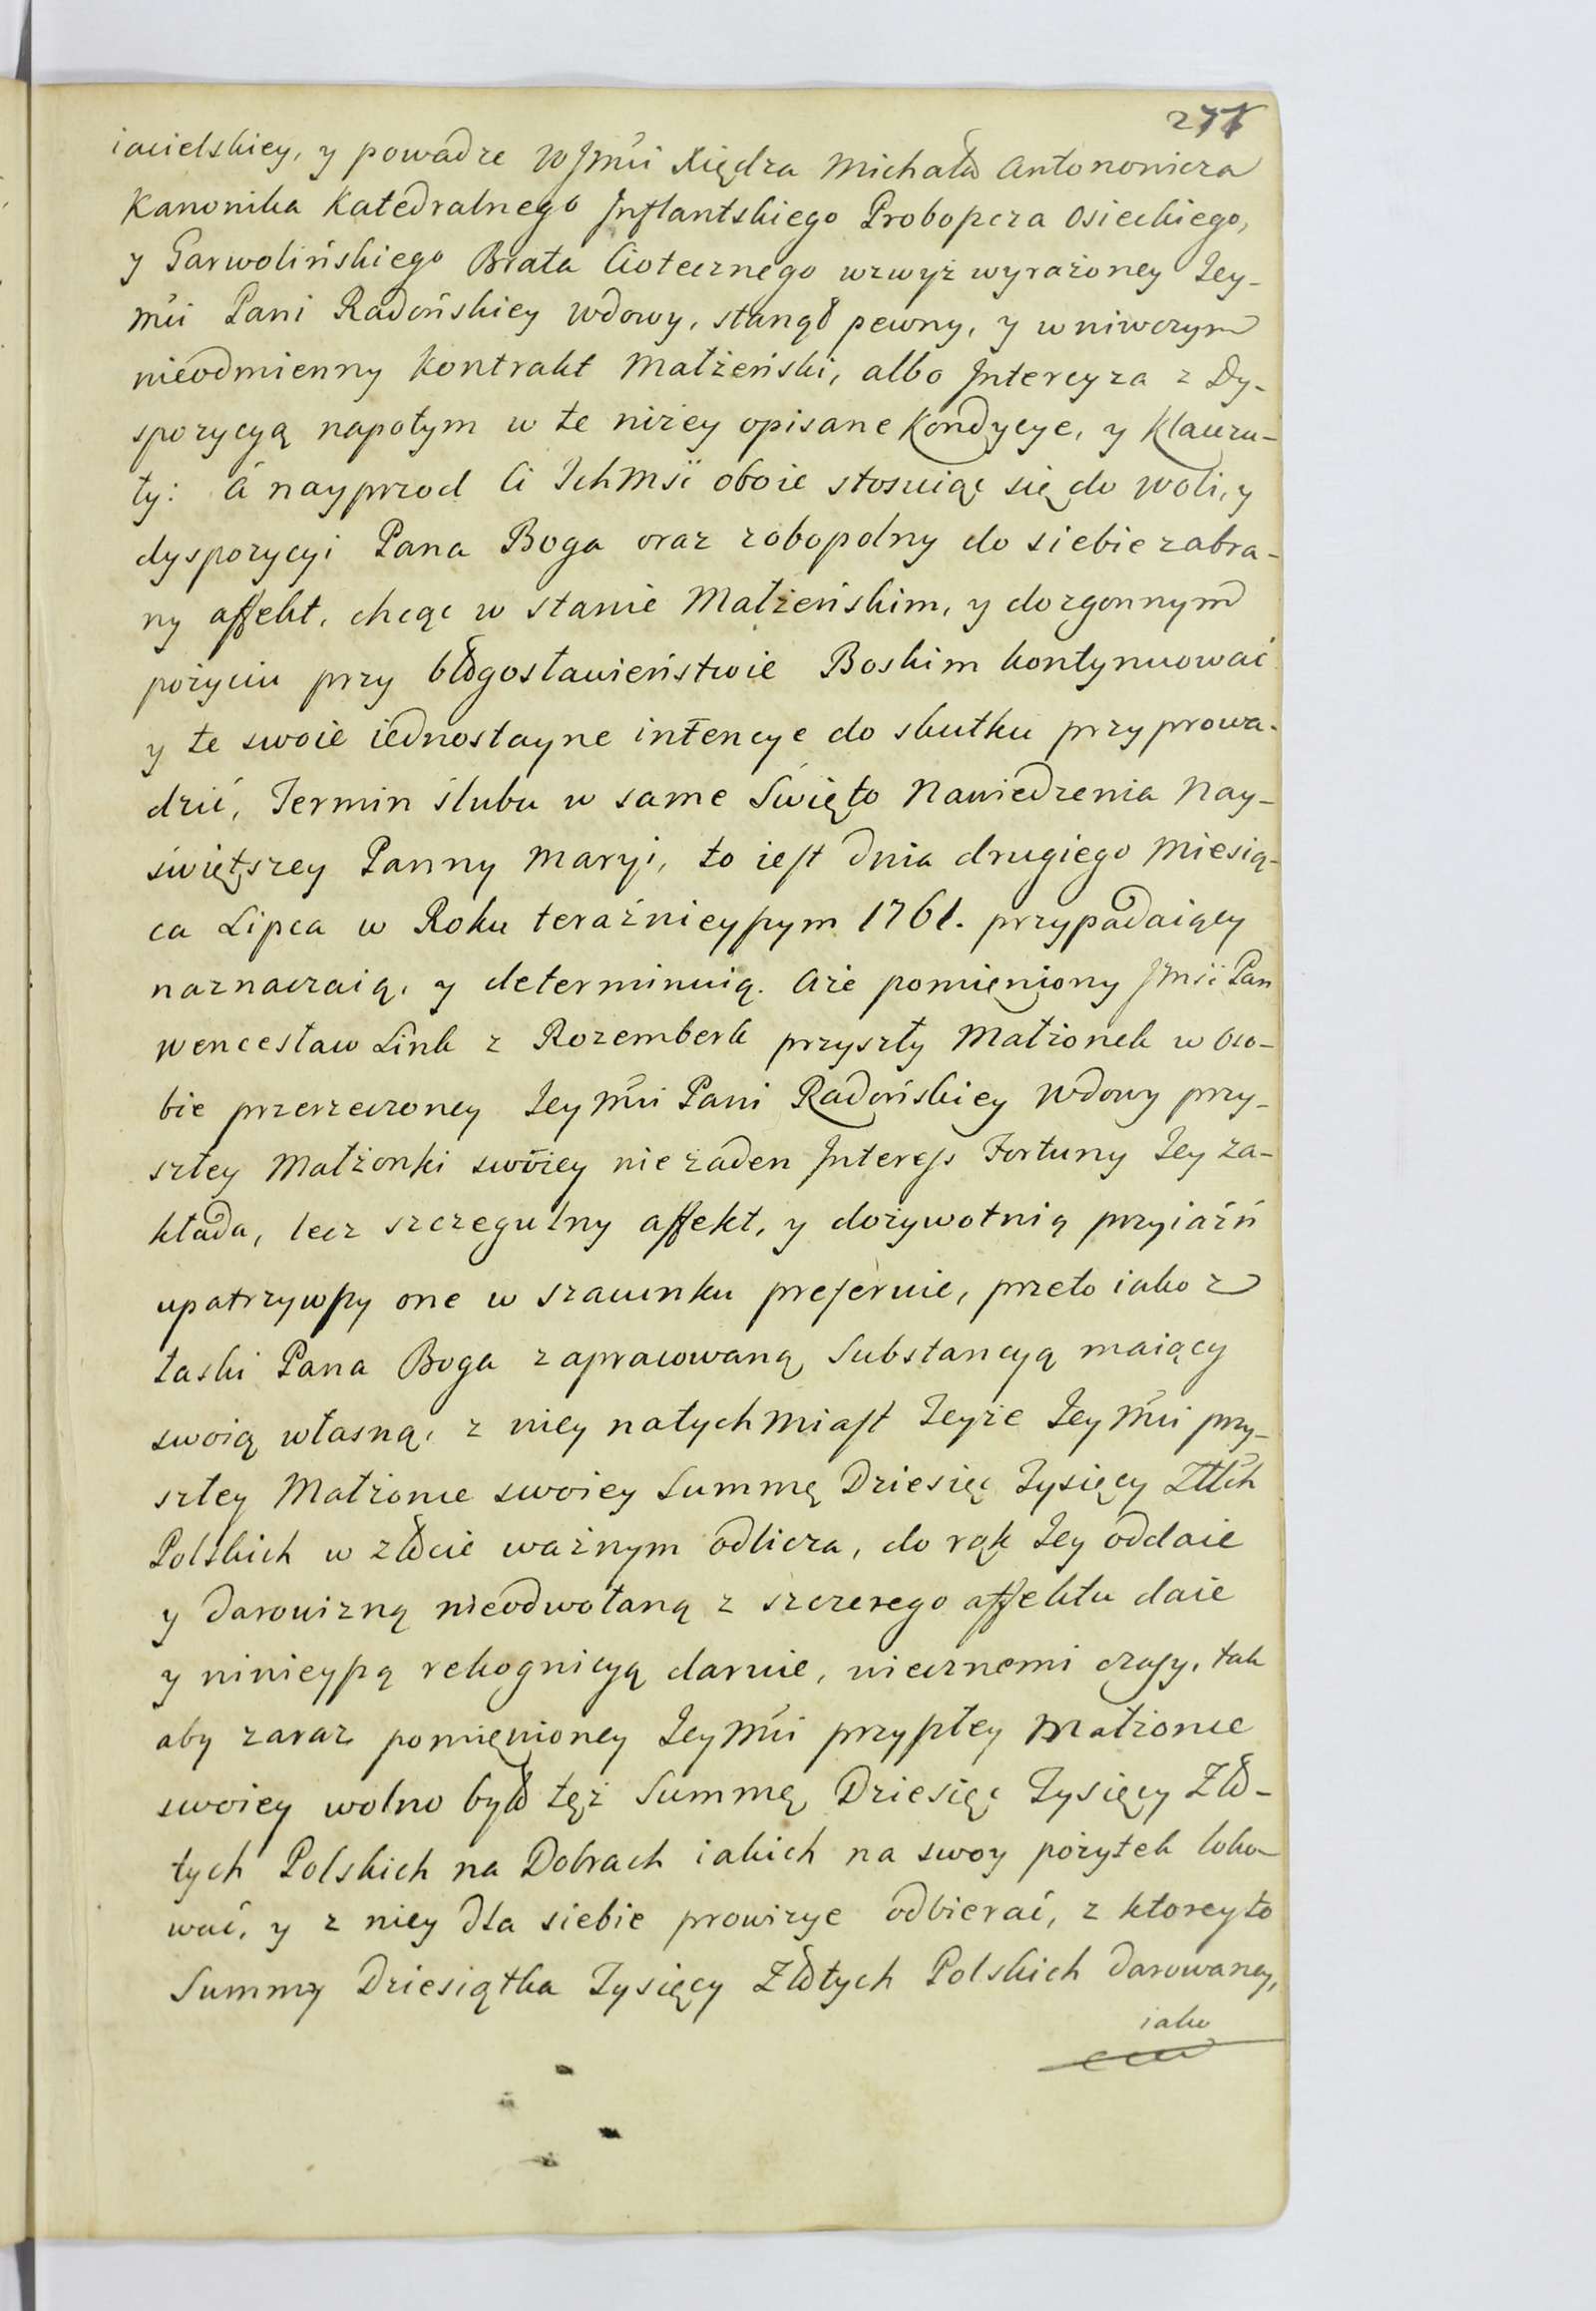 iacielskiey, y powadze WJmći Xiędza Michała Antonowicza
Kanonika Katedralnego Jnflantskiego Proboszcza Osieckiego,
y Garwolińskiego Brata Ciotecznego wzwyż wyrażoney Jey-
mći Pani Radońskiey Wdowy, stanął pewny, y w niwczym
nieodmienny Kontrakt Małżeński, albo Jntercyza z Dy-
spozycyą napotym w te niżey opisane Kondycye, y Klauzu-
ły: A nayprzod Ci Ichmść oboie stosuiąc się do woli, y
dyspozycyi Pana Boga oraz zobopolny do siebie zabra-
ny affekt, chcąc w stanie Małżeńskim, y dozgonnym
pożyciu przy błogosławieństwie Boskim kontynuować
y te swoie iednostayne intencye do skutku przyprowa-
dzić, Termin ślubu w same Swięto Nawiedzenia Nay-
świętszey Panny Maryi, to iest dnia drugiego Miesią-
ca Lipca w Roku teraźnieyszym 1761. przypadaiący
naznaczaią, y determinuią. Aże pomieniony Jmść Pan
Wencesław Link z Rozemberk przyszły Małżonek w Oso-
bie przerzeczoney Jeymći Pani Radońskiey Wdowy przy-
szłey Małżonki swoiey nie żaden Jnteress Fortuny Jey za-
kłada, lecz szczegulny affekt, y dożywotnią przyiaźń
upatrzywszy one w szacunku preferuie, przeto iako z
łaski Pana Boga zapracowaną Substancyą maiący
swoią własną, z niey natychmiast Jeyże Jeymći przy-
szłey Małżonce swoiey Summę Dziesięć Tysięcy Złłch
Polskich w złocie ważnym odlicza, do rąk Jey oddaie
y darowizną nieodwołaną z szczerego affektu daie
y ninieyszą rekognicyą daruie, wiecznemi czasy, tak
aby zaraz pomienioney Jeymći przyszłey Małżonce
swoiey wolno było tęż Summę Dziesięć Tysięcy Zło-
tych Polskich na Dobrach iakich na swoy pożytek loko-
wać, y z niey dla siebie prowizye odbierać, z ktorey to
Summy Dziesiątka Tysięcy Złotych Polskich darowaney,
iako